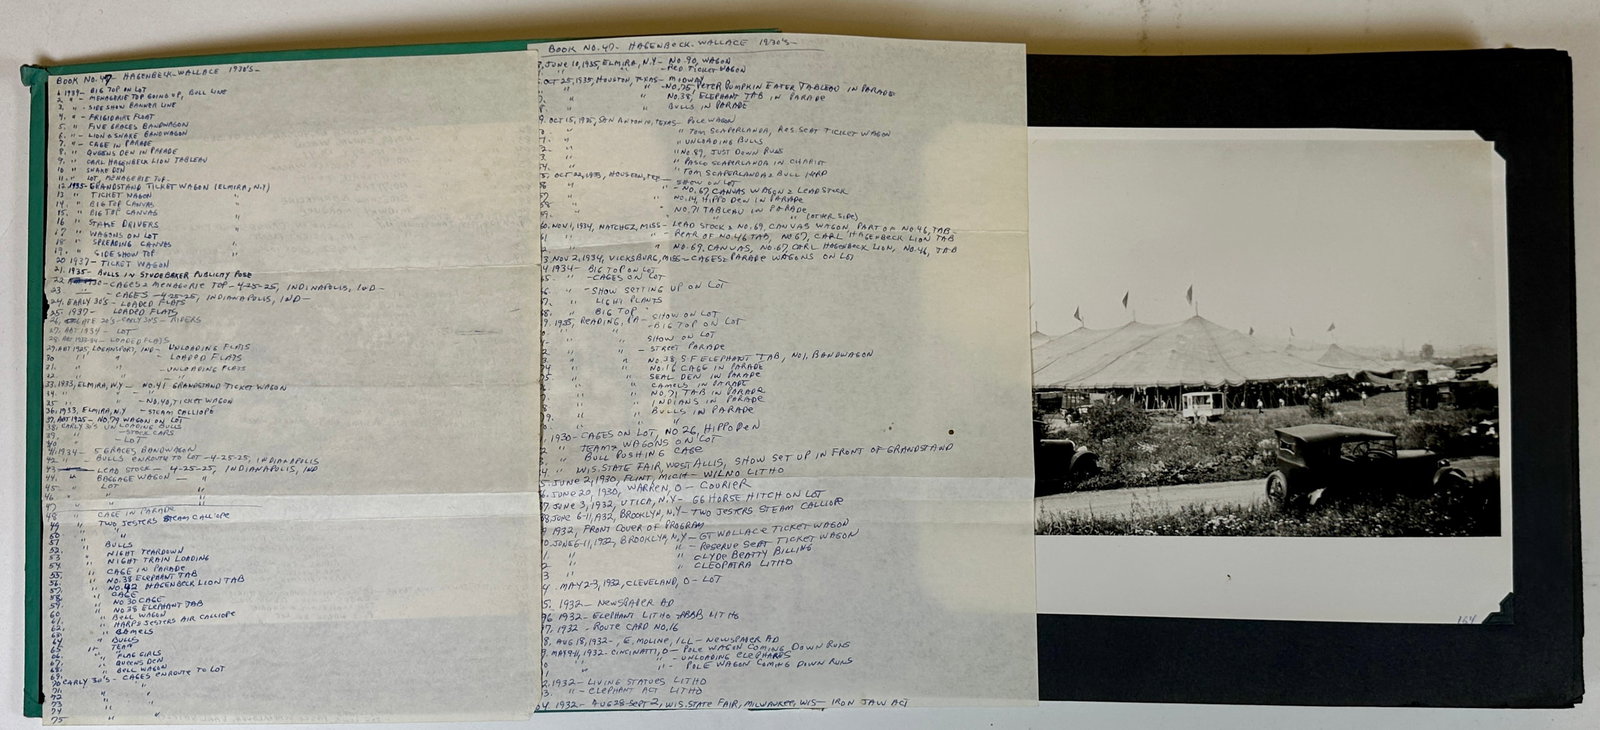 BOOK NO. 47- HAGENBECK-WALLACE 1930'S-
1 1934- BIG TOP ON LOT
2. " - MENAGERIE TOP GOING UP, BULL LINE
3. " - SIDE SHOW BANNER LINE
4. " - FRIGIDAIRE FLOAT
5. " - FIVE GRACES BANDWAGON
6. " - LION & SNAKE BANDWAGON
7. " - CAGE IN PARADE
8. " QUEENS DEN IN PARADE
9. " CARL HAGENBECK LION TABLEAU
10 " SNAKE DEN
11. " LOT, MENAGERIE TOP-
12. 1935- GRANDSTAND TICKET WAGON (ELMIRA, N.Y.)
13 " TICKET WAGON "
14. " BIG TOP CANVAS "
15. " BIG TOP CANVAS
16 " STAKE DRIVERS "
17 " WAGONS ON LOT
18 " SPREADING CANVAS "
19. " SIDE SHOW TOP "
20 1937- TICKET WAGON
21. 1935- BULLS IN STUDEBAKER PUBLICITY POSE
22 - CAGES & MENAGERIE TOP - 4-25-25, INDIANAPOLIS, IND-
23. - CAGES - 4-25-25, INDIANAPOLIS, IND-
24. EARLY 30'S- LOADED FLATS
25. 1937- LOADED FLATS
26. LATE 20'S-EARLY 30'S- RIDERS
27. ABT 1934 - LOT
28. ABT 1933-34- LOADED FLATS
29. ABT 1925, LOGANSPORT, IND- UNLOADING FLATS
30 " " " - LOADED FLATS
31. " " -UNLOADING FLATS
32. " " "
33. 1933, ELMIRA, N.Y - NO. 41 GRANDSTAND TICKET WAGON
34. " "
35 " " -NO. 40, TICKET WAGON
36. 1933, ELMIRA, N.Y - STEAM CALLIOPE
37. ABT 1925- NO. 79 WAGON ON LOT
38. EARLY 30'S UNLOADING BULLS
39. " -STOCK CARS
40 " -LOT
41 1934 - 5 GRACES BANDWAGON
42 " - BULLS ENROUTE TO LOT -4-25-25, INDIANAPOLIS
43 LEAD STOCK - 4-25-25, INDIANAPOLIS, IND
44. " BAGGAGE WAGON - "
45 " LOT "
46 " "
47 "
48 " CAGE IN PARADE
49 " TWO JESTERS STEAM CALLIOPE
50 " "
51 " BULLS
52. " NIGHT TEARDOWN
53 " NIGHT TRAIN LOADING
54. " CAGE IN PARADE
55. " NO. 38 ELEPHANT TAB
56. " NO. 42 HAGENBECK LION TAB
57. " CAGE
58. " NO 30 CAGE
59. " NO 38 ELEPHANT TAB
60 " BELL WAGON
61. " HARP & JESTERS AIR CALLIOPE
62. " CAMELS
63. " BULLS
64 " TEAM
65 " FLAG GIRLS
66. " QUEENS DEN
67. " BELL WAGON
70 EARLY 30'S - CAGES ENROUTE TO LOT
71. " "
72 " "
73 " "
74 " "
75 " "
BOOK NO. 47- HAGENBECK-WALLACE 1930'S-
JUNE 10, 1935, ELMIRA, N.Y- NO. 90, WAGON
" " RED TICKET WAGON
OCT 25, 1935, HOUSTON, TEXAS- MIDWAY
" " -NO. 75, PETER PUMPKIN EATER TABLEAU IN PARADE
" " NO. 38, ELEPHANT TAB IN PARADE
" " BULLS IN PARADE
9. OCT 15, 1935, SAN ANTONIO, TEXAS- POLE WAGON
" " TOM SCAPERLANDA, RES. SEAT TICKET WAGON
" " UNLOADING BULLS
" " NO. 89, JUST DOWN RUNS
" " PASCO SCAPERLANDA IN CHARIOT
" " TOM SCAPERLANDA & BULL HERD
OCT 22, 1935, HOUSTON, TEX- SHOW ON LOT
" " -NO. 67, CANVAS WAGON & LEAD STOCK
" " NO. 14, HIPPO DEN IN PARADE
" " NO. 71 TABLEAU IN PARADE
" " " (OTHER SIDE)
60. NOV 1, 1934, NATCHEZ, MISS- LEAD STOCK & NO. 69, CANVAS WAGON, PART OF NO. 46, TAB-
61 " " REAR OF NO. 46 TAB, NO. 67, CARL HAGENBECK LION TAB
" " NO. 69, CANVAS, NO. 67 CARL HAGENBECK LION, NO. 46, TAB
3. NOV 2, 1934, VICKSBURG, MISS- CAGES & PARADE WAGONS ON LOT
4 1934- BIG TOP ON LOT
" -CAGES ON LOT
" -SHOW SETTING UP ON LOT
" LIGHT PLANTS
" BIG TOP
9. 1935, READING, PA- SHOW ON LOT
" " -BIG TOP ON LOT
" " SHOW ON LOT
" " - STREET PARADE
" " NO. 38, S.F ELEPHANT TAB, NO 1, BANDWAGON
" " NO. 16 CAGE IN PARADE
" " SEAL DEN IN PARADE
" " CAMELS IN PARADE
" " NO. 71 TAB IN PARADE
" " INDIANS IN PARADE
" " BULLS IN PARADE
1930- CAGES ON LOT, NO. 26, HIPPO DEN
" TEAM & WAGONS ON LOT
" BULL PUSHING CAGE
" WIS. STATE FAIR, WEST ALLIS, SHOW SET UP IN FRONT OF GRANDSTAND
5. JUNE 2, 1930, FLINT, MICH- WILNO LITHO
6. JUNE 20, 1930, WARREN, O- COURIER
7. JUNE 3, 1932, UTICA, N.Y- 66 HORSE HITCH ON LOT
88. JUNE 6-11, 1932, BROOKLYN, N.Y- TWO JESTERS STEAM CALLIOPE
9 1932, FRONT COVER OF PROGRAM
0. JUNE 6-11, 1932, BROOKLYN, N.Y- GT WALLACE TICKET WAGON
" " - RESERVE SEAT TICKET WAGON
" " CLYDE BEATTY BILLING
" " CLEOPATRA LITHO
4. MAY 2-3, 1932, CLEVELAND, O - LOT
5. 1932- NEWSPAPER AD
96 1932- ELEPHANT LITHO
97. 1932 - ROUTE CARD NO. 16
8. AUG 18, 1932-, E. MOLINE, ILL - NEWSPAPER AD
9. MAY 9-11, 1932- CINCINATTI, O- POLE WAGON COMING DOWN RUNS
" " -UNLOADING ELEPHANTS
" " - POLE WAGON COMING DOWN RUNS
2. 1932- LIVING STATUES LITHO
3. " - ELEPHANT ACT LITHO
04. 1932- AUG 28-SEPT 2, WIS. STATE FAIR, MILWAUKEE, WIS- IRON JAW ACT
164